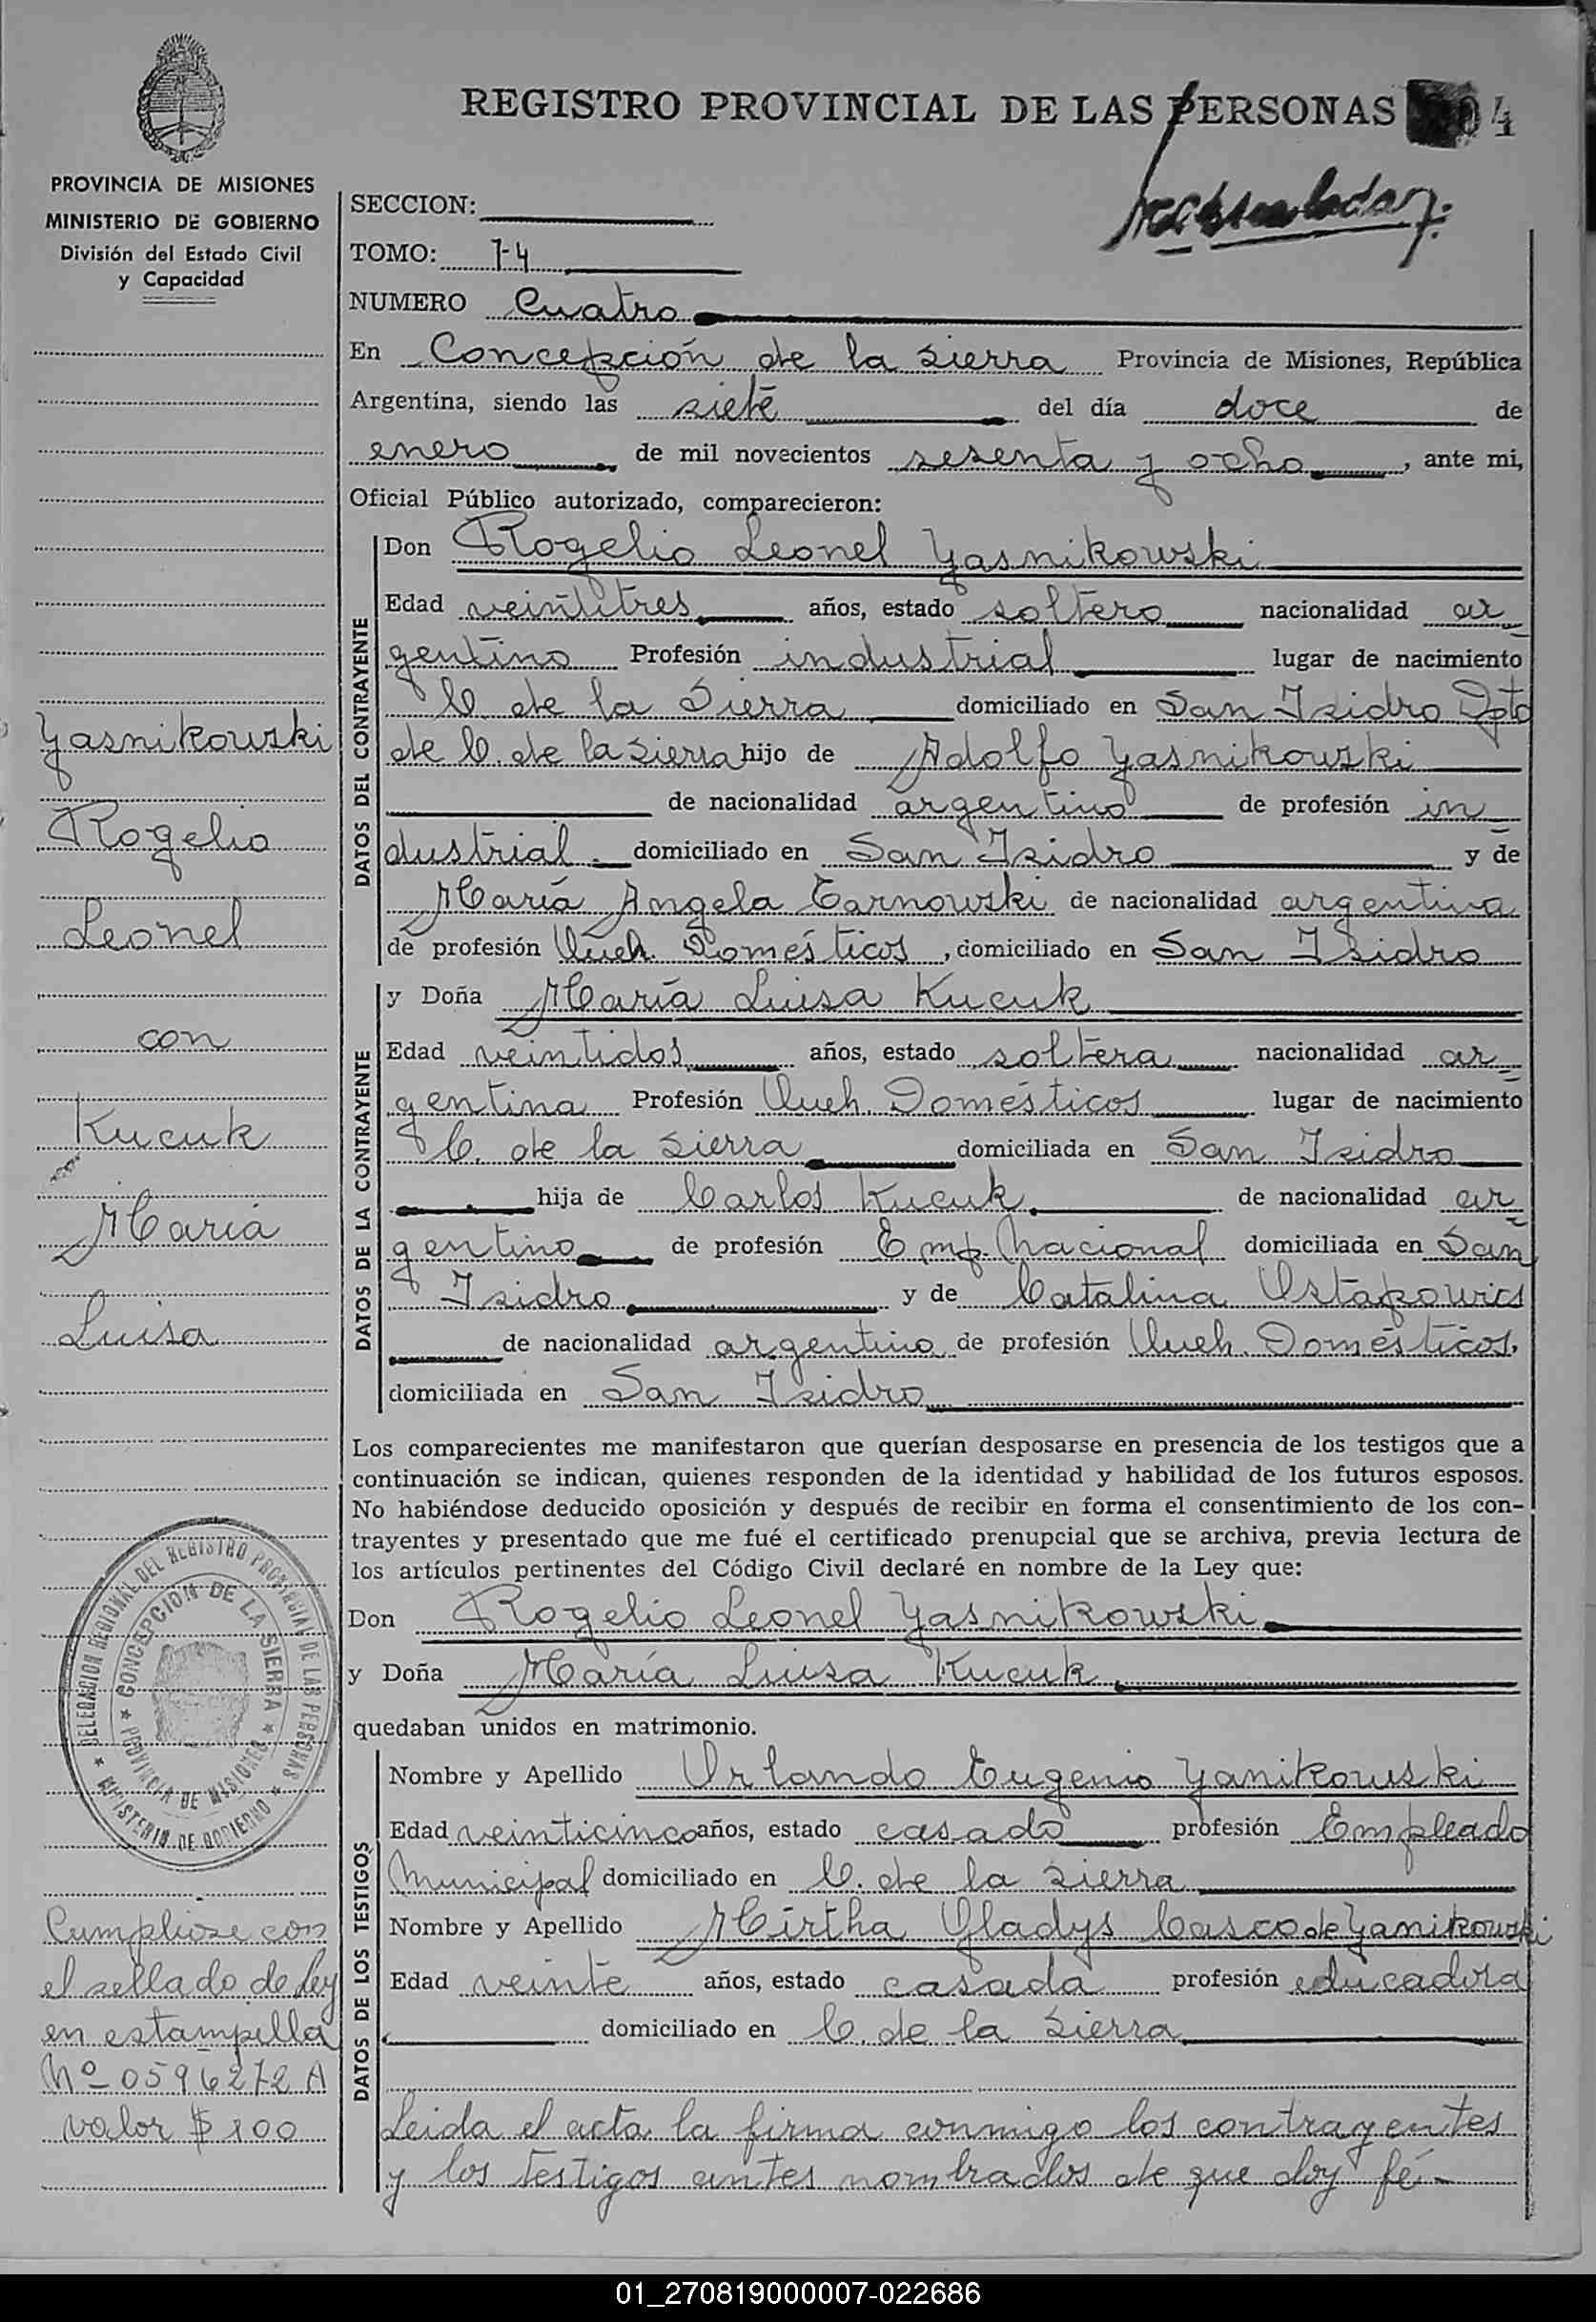 REGISTRO PROVINCIAL DE LAS PERSONAS 04
PROVINCIA DE MISIONES
MINISTERIO DE GOBIERNO
División del Estado Civil
y Capacidad
SECCION:
TOMO: 1-4
NUMERO Cuatro
En Concepción de la Sierra Provincia de Misiones, República
Argentina, siendo las siete del día doce de
enero de mil novecientos sesenta y ocho, ante mi,
Oficial Público autorizado, comparecieron:
DATOS DEL CONTRAYENTE
Don Rogelio Leonel Yasnikowski
Edad veintitres años, estado soltero nacionalidad ar
gentino Profesión industrial lugar de nacimiento
C. de la Sierra domiciliado en San Isidro Dpto
de C. de la Sierra hijo de Adolfo Yasnikowski
de nacionalidad argentino de profesión in
dustrial domiciliado en San Isidro y de
María Angela Tarnowski de nacionalidad argentina
de profesión Queh. Domésticos, domiciliado en San Isidro
DATOS DE LA CONTRAYENTE
y Doña María Luisa Kucuk
Edad veintidos años, estado soltera nacionalidad ar
gentina Profesión Queh. Domésticos lugar de nacimiento
C. de la Sierra domiciliada en San Isidro
hija de Carlos Kucuk de nacionalidad ar
gentino de profesión Emp. Nacional domiciliada en San
Isidro y de Catalina Ostapowics
de nacionalidad argentina de profesión Queh. Domésticos,
domiciliada en San Isidro
Los comparecientes me manifestaron que querían desposarse en presencia de los testigos que a
continuación se indican, quienes responden de la identidad y habilidad de los futuros esposos.
No habiéndose deducido oposición y después de recibir en forma el consentimiento de los con-
trayentes y presentado que me fué el certificado prenupcial que se archiva, previa lectura de
los artículos pertinentes del Código Civil declaré en nombre de la Ley que:
Don Rogelio Leonel Yasnikowski
y Doña María Luisa Kucuk
quedaban unidos en matrimonio.
DATOS DE LOS TESTIGOS
Nombre y Apellido Orlando Eugenio Yanikowski
Edad veinticinco años, estado casado profesión Empleado
Municipal domiciliado en C. de la Sierra
Nombre y Apellido Mirtha Gladys Casco de Yanikowski
Edad veinte años, estado casada profesión educadora
domiciliado en C. de la Sierra
Leida el acta la firma conmigo los contrayentes
y los testigos antes nombrados de que doy fé.-
Yasnikowski
Rogelio
Leonel
con
Kucuk
María
Luisa
DELEGACION REGIONAL DEL REGISTRO PROVINCIAL DE LAS PERSONAS
MINISTERIO DE GOBIERNO
CONCEPCION DE LA SIERRA
PROVINCIA DE MISIONES
Cumplióse con
el sellado de ley
en estampilla
Nº 0596272 A
valor $ 100
01_270819000007-022686